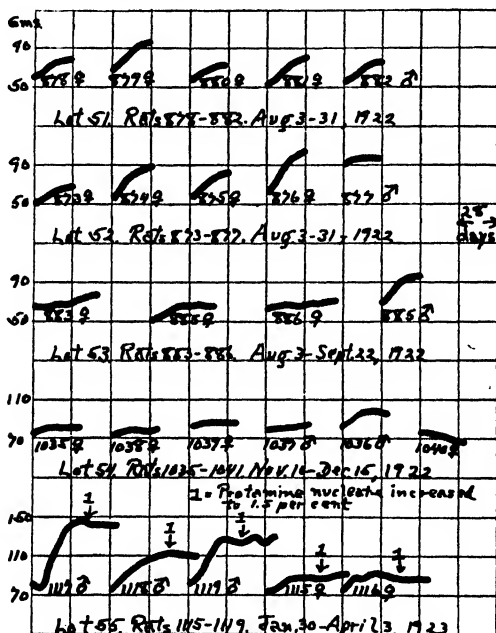 Gms
90
50
878♀ 879♀ 880♀ 881♀ 882♂
Lot 51. Rats 878-882. Aug 3-31, 1922
90
50
873♀ 874♀ 875♀ 876♀ 877♂
Lot 52. Rats 873-877. Aug 3-31-1922
28
days
90
50
883♀ 886♀ 885♂
Lot 53. Rats 883-886. Aug 3-Sept. 22, 1922
110
70
1035♀ 1038♀ 1037♀ 1037♂ 1036♂ 1040♀
Lot 54. Rats 1035-1041. Nov. 16-Dec 15, 1922
1 = Protamine nucleate increased
to 1.5 per cent
150
1 1 1 1 1
110
70
1117♂ 1118♂ 1119♂ 1115♀ 1116♀
Lot 55. Rats 1115-1119. Jan. 30-April 3, 1923